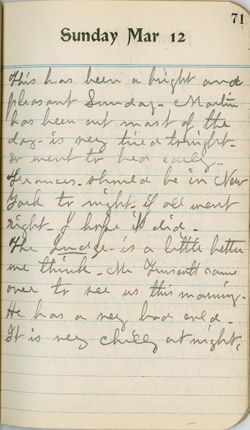 71
Sunday Mar 12
This has been a bright and
pleasant Sunday - Martin
has been out most of the
day - is very tired tonight -
so went to bed early -
Frances - should be in New
York to night - if all went
right - I hope it did -
The Judge - is a little better
we think - Mr came
over to see us this morning -
He has a very bad cold -
It is very chilly at night.